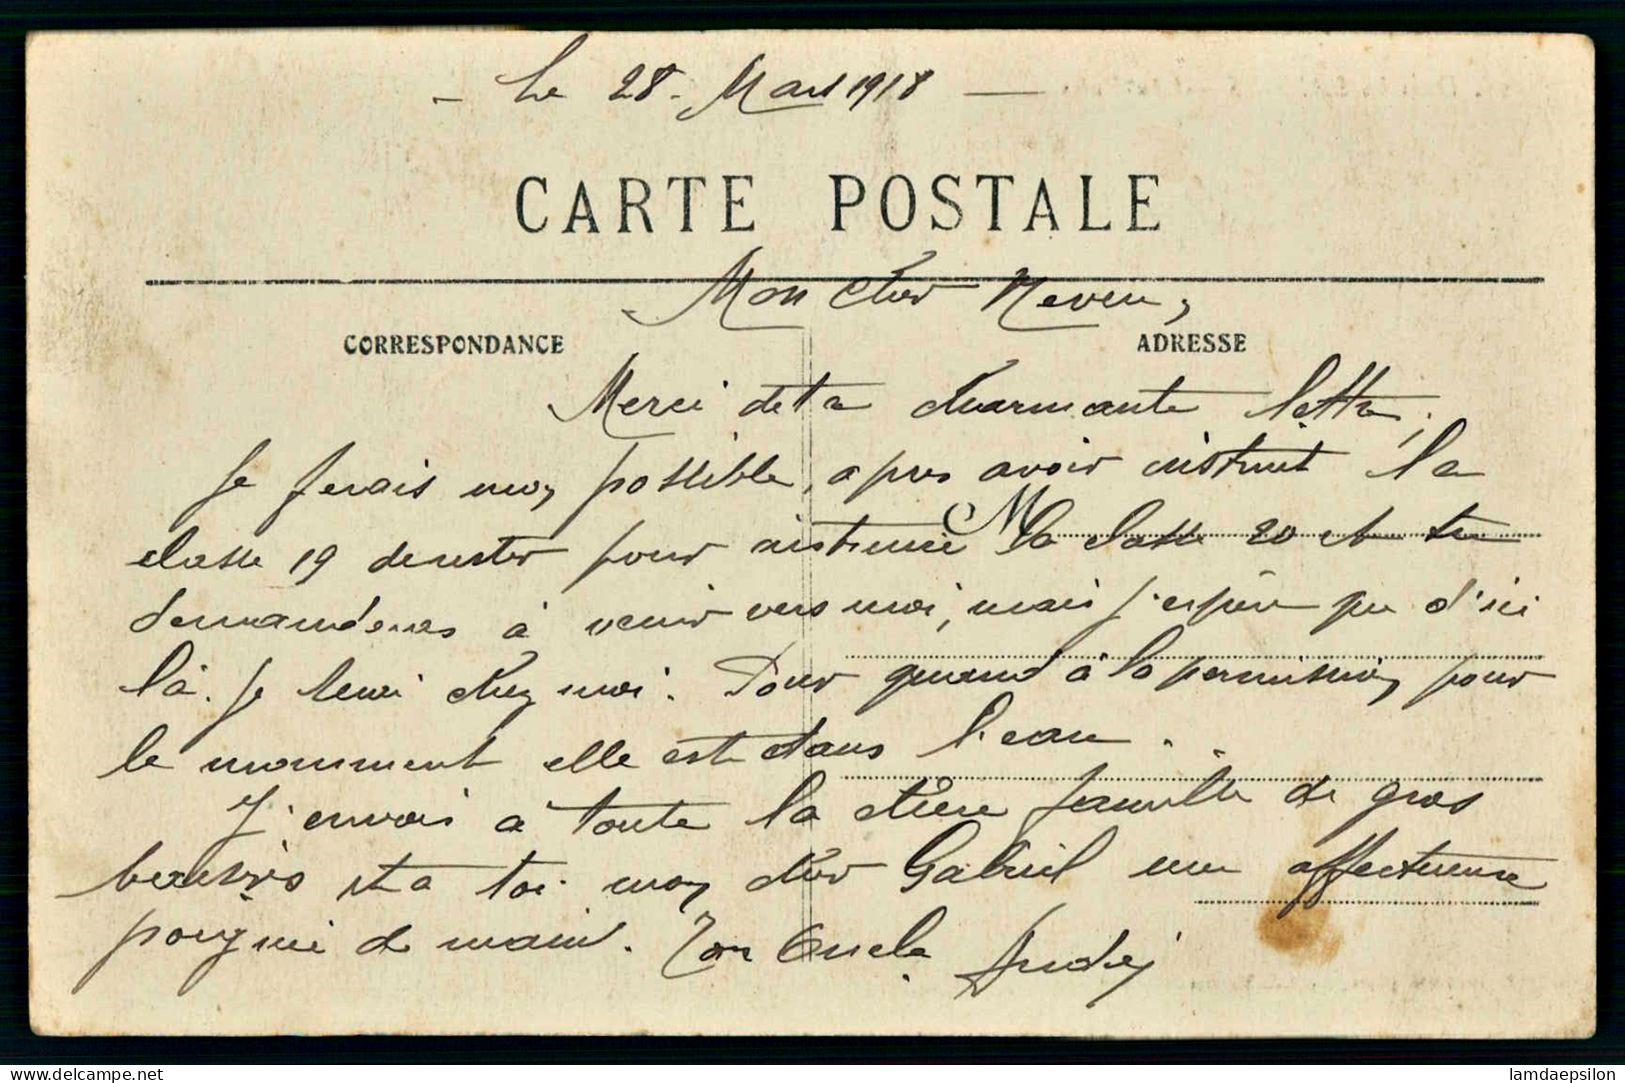 Le 28 Mars 1918
CARTE POSTALE
Mon cher Neveu,
CORRESPONDANCE
ADRESSE
Merci de ta charmante lettre,
Je ferais mon possible, apres avoir instruit la
classe 19 de rester pour instruire la classe 20 et tu
demanderas à venir vers moi, mais j'espère que d'ici
là. Je serai chez moi. Pour quand à la permission, pour
le momment elle est dans l'eau.
J'envoi à toute la chère famille de gros
baisers et a toi mon cher Gabriel une affectueuse
poignié de main. Ton Oncle André
M
lamdaepsilon
https://www.delcampe.net